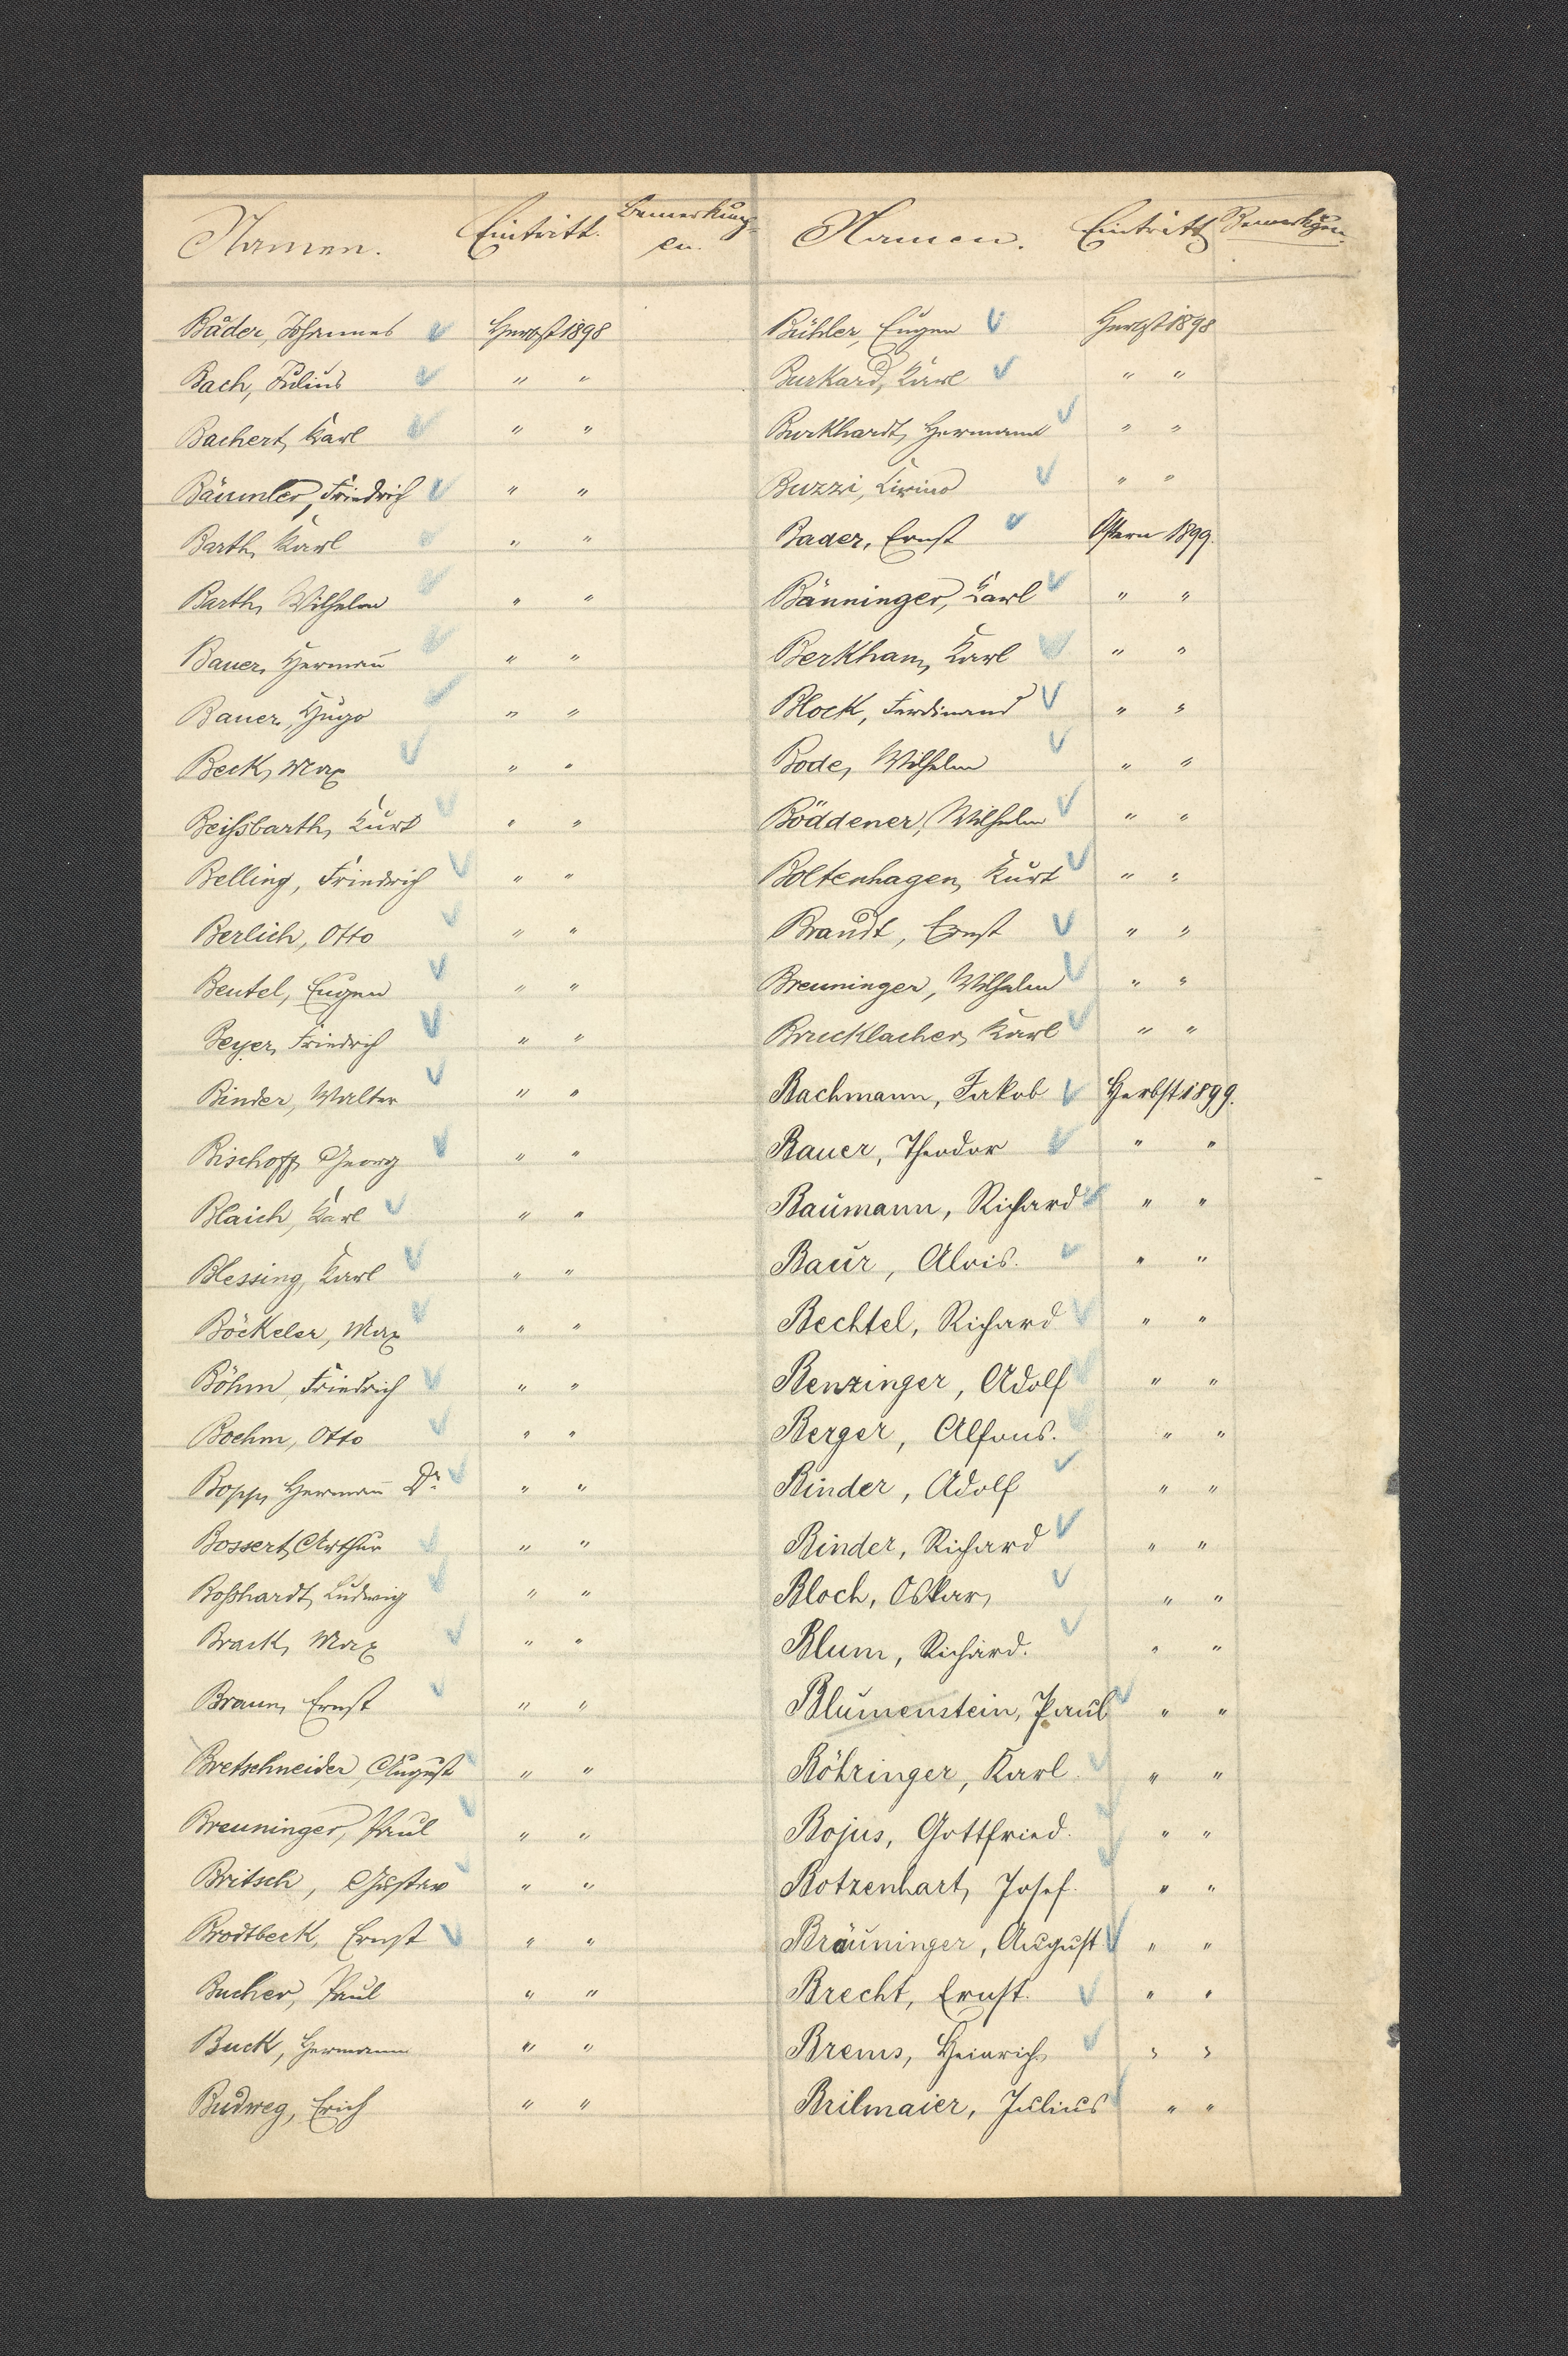 Namen. Eintritt. Bemerkung-
en.
Bäder, Johannes Herbst 1898
Bach, Julius " "
Bachert, Karl " "
Bäumler, Friedrich " "
Barth, Karl " "
Barth, Wilhelm " "
Bauer, Hermann " "
Bauer, Hugo " "
Beck, Max " "
Beißbarth, Kurt " "
Belling, Friedrich " "
Berlich, Otto " "
Beutel, Eugen " "
Beyer, Friedrich " "
Binder, Walter " "
Bischoff, Georg " "
Blaich, Karl " "
Blessing, Karl " "
Böckeler, Max " "
Böhm, Friedrich " "
Boehm, Otto " "
Bopp, Hermann Dr. " "
Bossert, Arthur " "
Boßhardt, Ludwig " "
Brack, Max " "
Braun, Ernst " "
Bretschneider, August " "
Breuninger, Paul " "
Britsch, Gustav " "
Brodtbeck, Ernst " "
Bucher, Paul " "
Buck, Hermann " "
Budweg, Erich " "
Namen. Eintritt Bemerkgen.
Bühler, Eugen Herbst 1898
Burkard, Karl " "
Burkhardt, Hermann " "
Buzzi, " "
Bader, Ernst Ostern 1899.
Bänninger, Karl " "
Berkhan, Karl " "
Block, Ferdinand " "
Bode, Wilhelm " "
Böddener, Wilhelm " "
Boltenhagen, Kurt " "
Brandt, Ernst " "
Breuninger, Wilhelm " "
Brucklacher, Karl " "
Bachmann, Jakob Herbst 1899.
Bauer, Theodor " "
Baumann, Richard " "
Baur, Alois. " "
Bechtel, Richard " "
Benzinger, Adolf " "
Berger, Alfons. " "
Binder, Adolf " "
Binder, Richard " "
Bloch, Oskar, " "
Blum, Richard. " "
Blumenstein, Paul " "
Böhringer, Karl " "
Bojus, Gottfried. " "
Botzenhart, Josef. " "
Bräuninger, August " "
Brecht, Ernst. " "
Brems, Heinrich, " "
Brilmaier, Julius " "